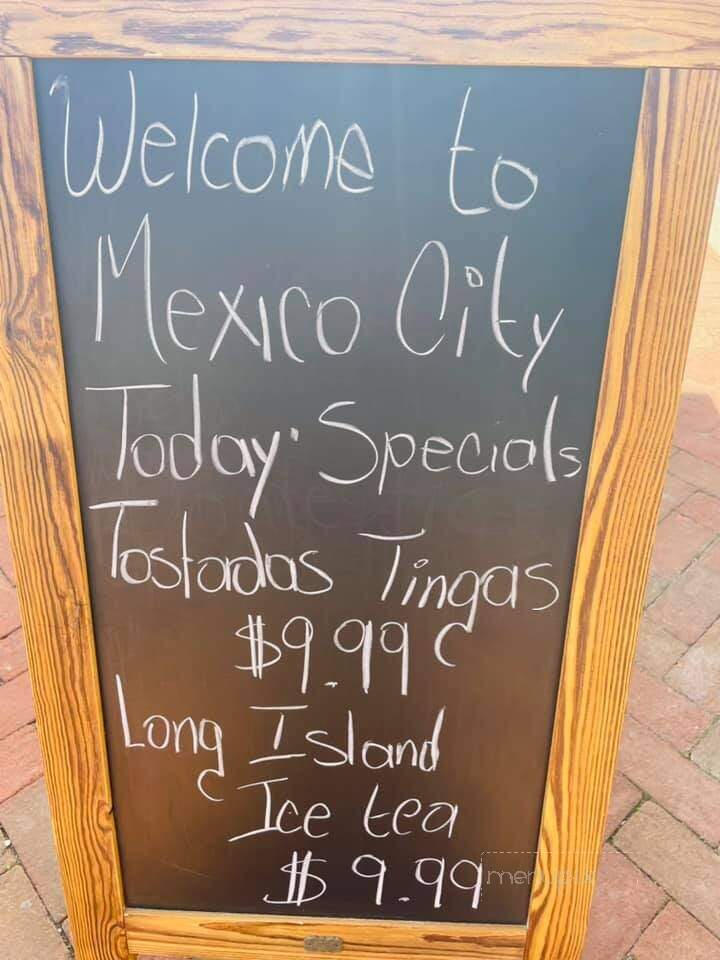 Welcome to
Mexico City
Today' Specials
Tostadas Tingas
$9.99
Long Island
Ice tea
$9.99
menupix